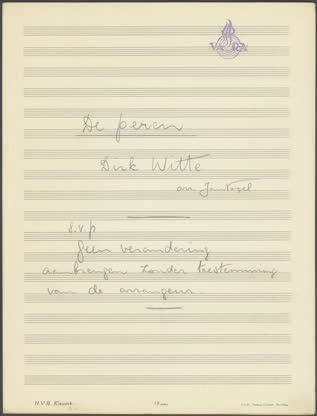 VARA
De peren
Dirk Witte
arr. Jan Vogel
s.v.p
geen verandering
aanbrengen zonder toestemming
van de arrangeur.
H.V.N. Klassiek